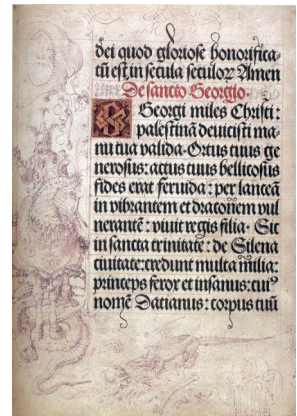 dei quod gloriose honorifica-
tū est, in secula seculoꝝ Amen
De sancto Georgio.
Georgi miles Christi:
palestinā deuicisti ma-
nu tua valida. Ortus tuus ge
nerosus: actus tuus bellicosus
fides erat feruida: per lanceā
in vibrantem et draconem vul
nerantē: viuit regis filia. Sic
in sancta trinitate: de Silena
ciuitate: credunt multa milia:
princeps ferox et insanus: cui9
nomē Datianus: corpus tuū